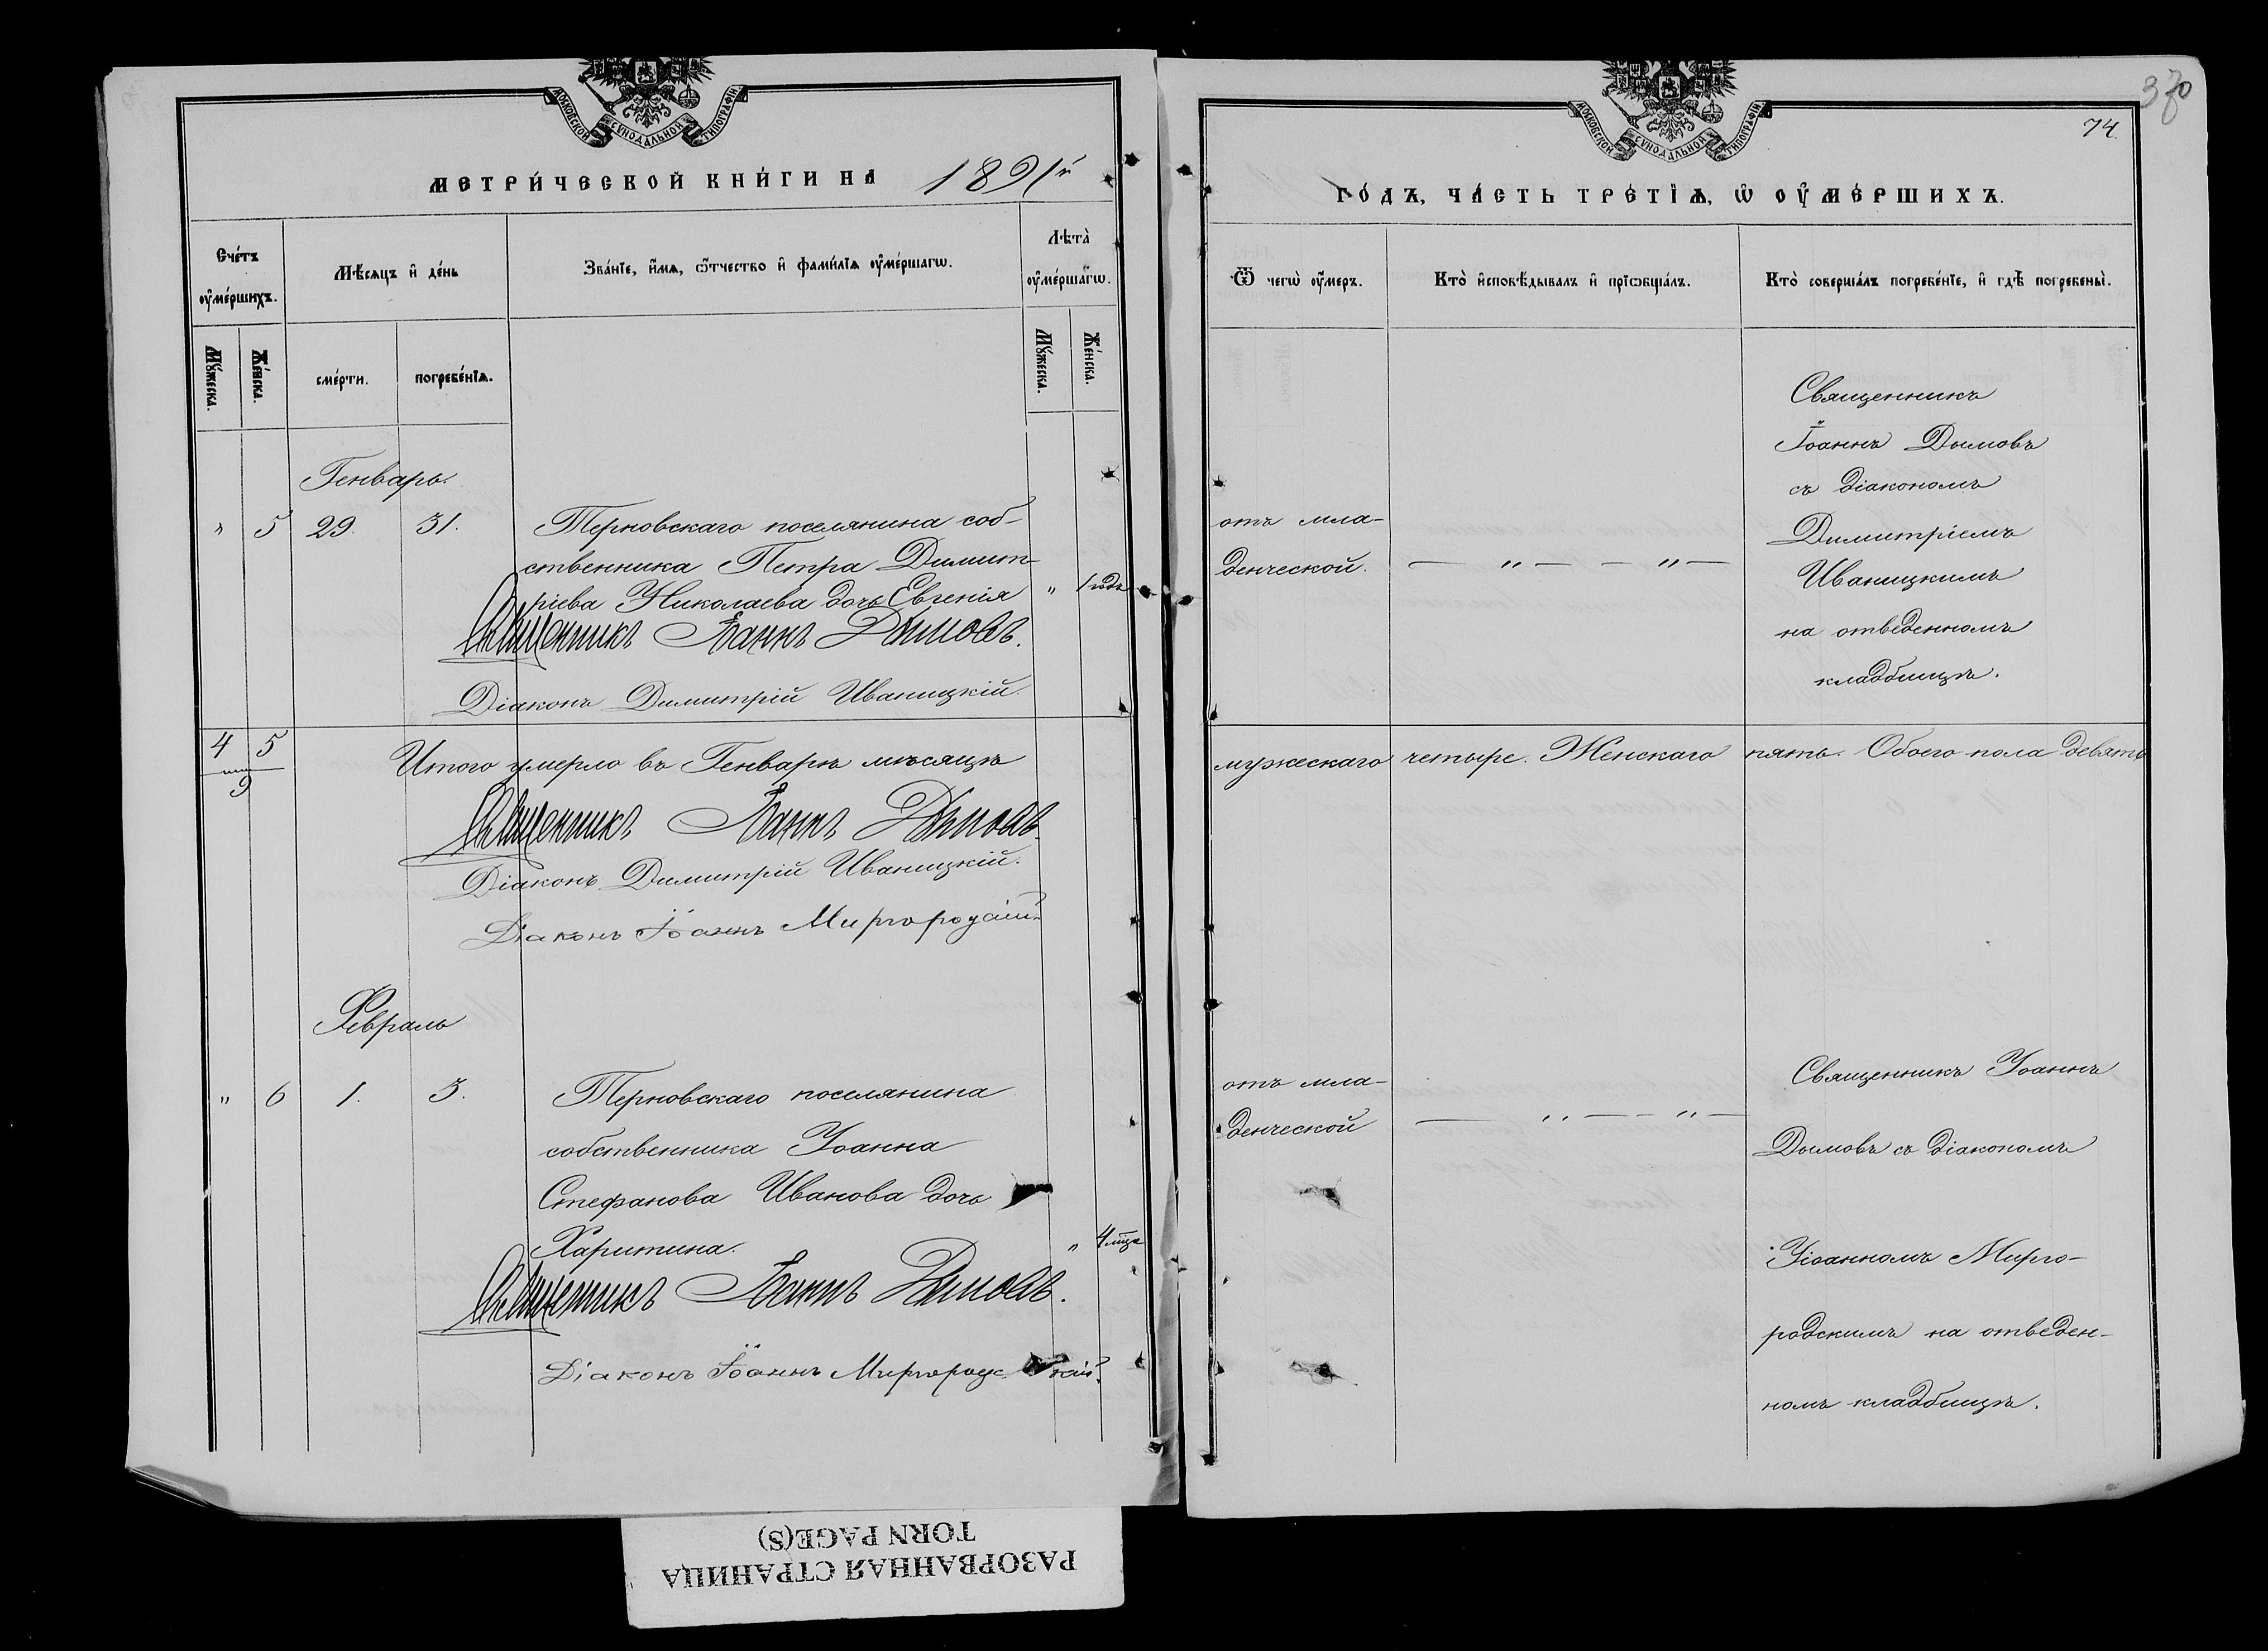 МОСКОВСКОЙ СѴНОДАЛЬНОЙ ТИПОГРАФІИ
МЕТРИ́ЧЕСКОЙ КНИ́ГИ НА 1891й
Сче́тъ оу҆ме́ршихъ.
Мѣ́сяцъ и҆ де́нь
Зва́нїе, и҆́мѧ, ѻ҆́тчество и҆ фами́лїѧ оу҆ме́ршагѡ.
Лѣта̀ оу҆ме́ршагѡ.
Мꙋ́жеска.
Же́нска.
сме́рти.
погребе́нїѧ.
Мꙋ́жеска.
Же́нска.
Генварь.
" 5 29. 31. Терновскаго поселянина соб-
ственника Петра Димит-
ріева Николаева дочь Евгенія " 1 годъ
Священникъ Іоаннъ Дымовъ.
Діаконъ Димитрій Иваницкій.
4 5
9
Итого умерло въ Генварѣ мѣсяцѣ
Священникъ Іоаннъ Дымовъ.
Діаконъ Димитрій Иваницкій.
Діаконъ Іоаннъ Миргородскій
Февраль
" 6 1. 3. Терновскаго поселянина
собственника Іоанна
Стефанова Иванова дочь
Харитина. " 4 мца
Священникъ Іоаннъ Дымовъ.
Діаконъ Іоаннъ Миргородскій.
370
74.
МОСКОВСКОЙ СѴНОДАЛЬНОЙ ТИПОГРАФІИ
ГО́ДЪ, ЧА́СТЬ ТРЕ́ТЇѦ, Ѡ҆ ОУ҆МЕ́РШИХЪ.
Ѿ чегѡ̀ оу҆́меръ.
Кто̀ и҆сповѣ́дывалъ и҆ прїѡбща́лъ.
Кто̀ соверша́лъ погребе́нїе, и҆ гдѣ̀ погребены̀.
отъ мла-
денческой.
— " — — " —
Священникъ
Іоаннъ Дымовъ
съ діакономъ
Димитріемъ
Иваницкимъ
на отведенномъ
кладбищѣ.
мужескаго четыре. Женскаго пять. Обоего пола девять
отъ мла-
денческой
— " — — " —
Священникъ Іоаннъ
Дымовъ съ діакономъ
Іоанномъ Мирго-
родскимъ на отведен-
номъ кладбищѣ.
РАЗОРВАННАЯ СТРАНИЦА
TORN PAGE(S)